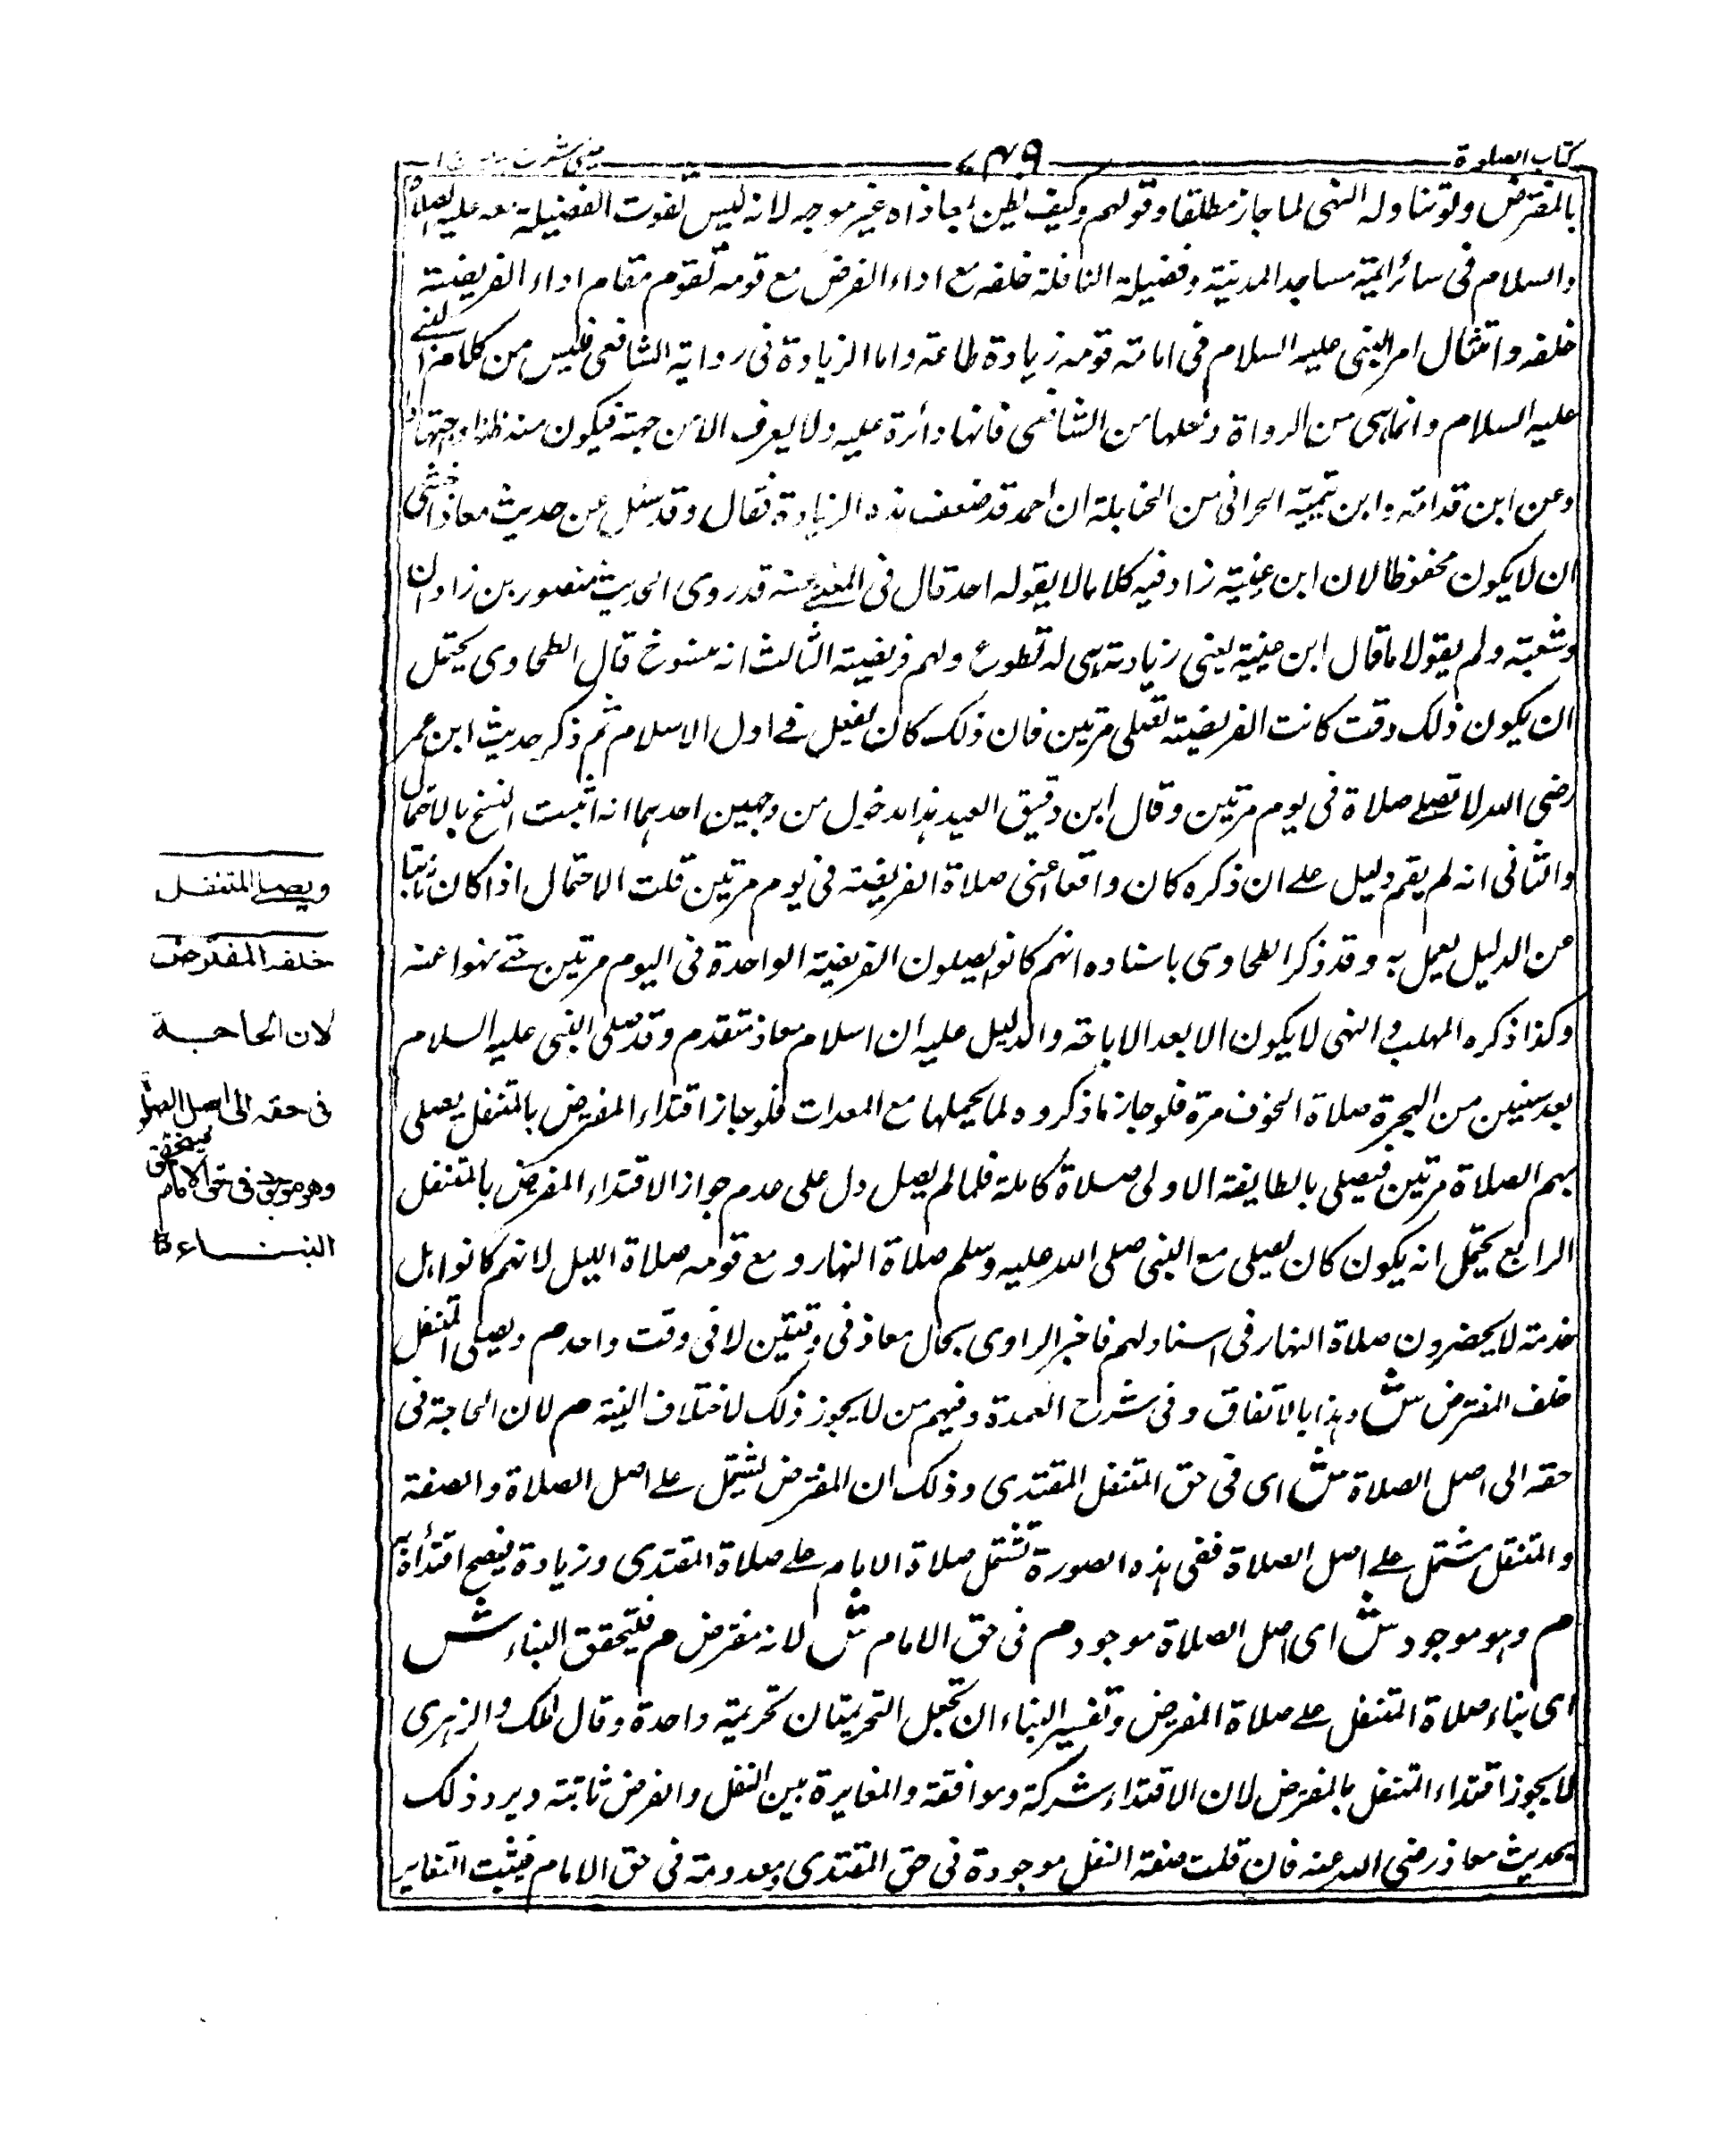 كتاب الصلوة
٧٤٩
بالمفترض ولو تناوله النهى لما جاز مطلقا وقولهم وكيف يظن بمعاذ اه غير موجه لانه ليس تفوت الفضيلة معه عليه الصلاة
والسلام فى سائر ائمة مساجد المدينة وفضيلة النافلة خلفه مع اداء الفرض مع قومه تقوم مقام اداء الفريضة
خلفه وامتثال امر النبى عليه السلام فى امامة قومه زيادة طاعة واما الزيادة فى رواية الشافعى فليس من كلام النبى
عليه السلام وانما هى من الرواة ولعلها من الشافعى فانها دائرة عليه ولا يعرف الا من جهته فيكون منه ظنا واجتهادا
وعن ابن قدامة وابن تيمية الحرانى من الحنابلة ان احمد قد ضعف هذه الزيادة فقال وقد سئل عن حديث معاذ اخشى
ان لا يكون محفوظا لان ابن عيينة زاد فيه كلاما لا يقوله احد قال فى المغنى عنه قد روى الحديث منصور بن زاذان
وشعبة ولم يقولا ما قال ابن عيينة يعنى زيادته هى له تطوع ولهم فريضة الثالث انه منسوخ قال الطحاوى يحتمل
ان يكون ذلك وقت كانت الفريضة تصلى مرتين فان ذلك كان يفعل فى اول الاسلام ثم ذكر حديث ابن عمر
رضى الله لا تصلى صلاة فى يوم مرتين وقال ابن دقيق العيد هذا مدخول من وجهين احدهما انه اثبت النسخ بالاحتمال
والثانى انه لم يقم دليل على ان ذكره كان واقعا اعنى صلاة الفريضة فى يوم مرتين قلت الاحتمال اذا كان ناشيا
من الدليل يعمل به وقد ذكر الطحاوى باسناده انهم كانوا يصلون الفريضة الواحدة فى اليوم مرتين حتى نهوا عنه
وكذا ذكره المهلب والنهى لا يكون الا بعد الاباحة والدليل عليه ان اسلام معاذ متقدم وقد صلى النبى عليه السلام
بعد سنين من الهجرة صلاة الخوف مرة فلو جاز ما ذكروه لما يحملها مع المعدات فلو جاز اقتداء المفترض بالمتنفل يصلى
بهم الصلاة مرتين فيصلى بالطايفة الاولى صلاة كاملة فلما لم يصل دل على عدم جواز الاقتداء المفترض بالمتنفل
الرابع يحتمل انه يكون كان يصلى مع النبى صلى الله عليه وسلم صلاة النهار ومع قومه صلاة الليل لانهم كانوا اهل
خدمة لا يحضرون صلاة النهار فى اسنادلهم فاخبر الراوى بحال معاذ فى وقتين لا فى وقت واحد م ويصلى المتنفل
خلف المفترض ش وهذا بالاتفاق وفى شرح العمدة وفيهم من لا يجوز ذلك لاختلاف النية م لان الحاجة فى
حقه الى اصل الصلاة ش اى فى حق المتنفل المقتدى وذلك ان المفترض يشتمل على اصل الصلاة والصفة
والمتنفل مشتمل على اصل الصلاة ففى هذه الصورة تشتمل صلاة الامام على صلاة المقتدى وزيادة فيصح اقتداؤه به
م وهو موجود ش اى اصل الصلاة موجود م فى حق الامام ش لانه مفترض م فيتحقق البناء ش
اى بناء صلاة المتنفل على صلاة المفترض وتفسير البناء ان تجعل التحريمتان تحريمة واحدة وقال مالك والزهرى
لا يجوز اقتداء المتنفل بالمفترض لان الاقتداء شركة وموافقة والمغايرة بين النفل والفرض ثابتة ويرد ذلك
بحديث معاذ رضى الله عنه فان قلت صفة النفل موجودة فى حق المقتدى معدومة فى حق الامام فيثبت التغاير
ويصلى المتنفل
خلف المفترض
لان الحاجة
فى حقه الى اصل الصلوة
وهو موجود فى حق الامام فيتحقق
البناء